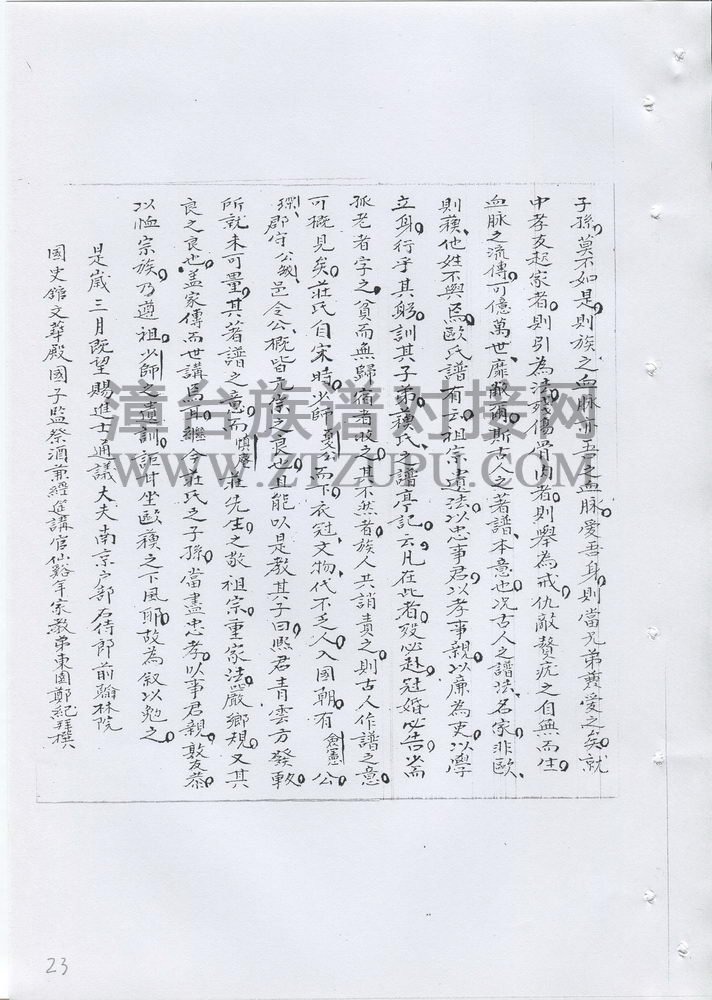 子孫莫不如是則族之血脉亦吾之血脉愛吾身則當兄弟冀愛之矣就
中孝友起家者則引為法殘傷骨肉者則舉為戒仇敵贅疣之自無而生
血脉之流傳可億萬世靡斁爾斯古人之著譜本意也况古人之譜法名家非歐
則蘓他姓不與焉歐氏譜有云祖宗遺法以忠事君以孝事親以廉為吏以學
立身行乎其躬訓其子弟蘓氏之譜亭記云凡在此者殁必赴冠婚必告少而
孤老者字之貧而無歸宿者收之其不然者族人共誚責之則古人作譜之意
可概見矣莊氏自宋時少師夏公而下衣冠文物代不乏人入國朝有僉憲公
琛郡守公畿邑令公概皆元宗之良也且能以是教其子曰熙君青雲方發軔
所就未可量其著譜之意而慎庵莊先生之敬祖宗重家法嚴鄉規又其
良之良也盖家傳而世講焉耳繼今莊氏之子孫當盡忠孝以事君親敦友恭
以恤宗族乃遵祖少師之遺訓詎耳坐歐蘓之下風耶故為叙以勉之
是嵗三月既望賜進士通議大夫南京户部右侍郎前翰林院
國史舘文華殿國子監祭酒兼經筵講官仙谿年家教弟東園鄭紀拜撰
漳台族谱对接网
WWW.ZTZUPU.COM
23